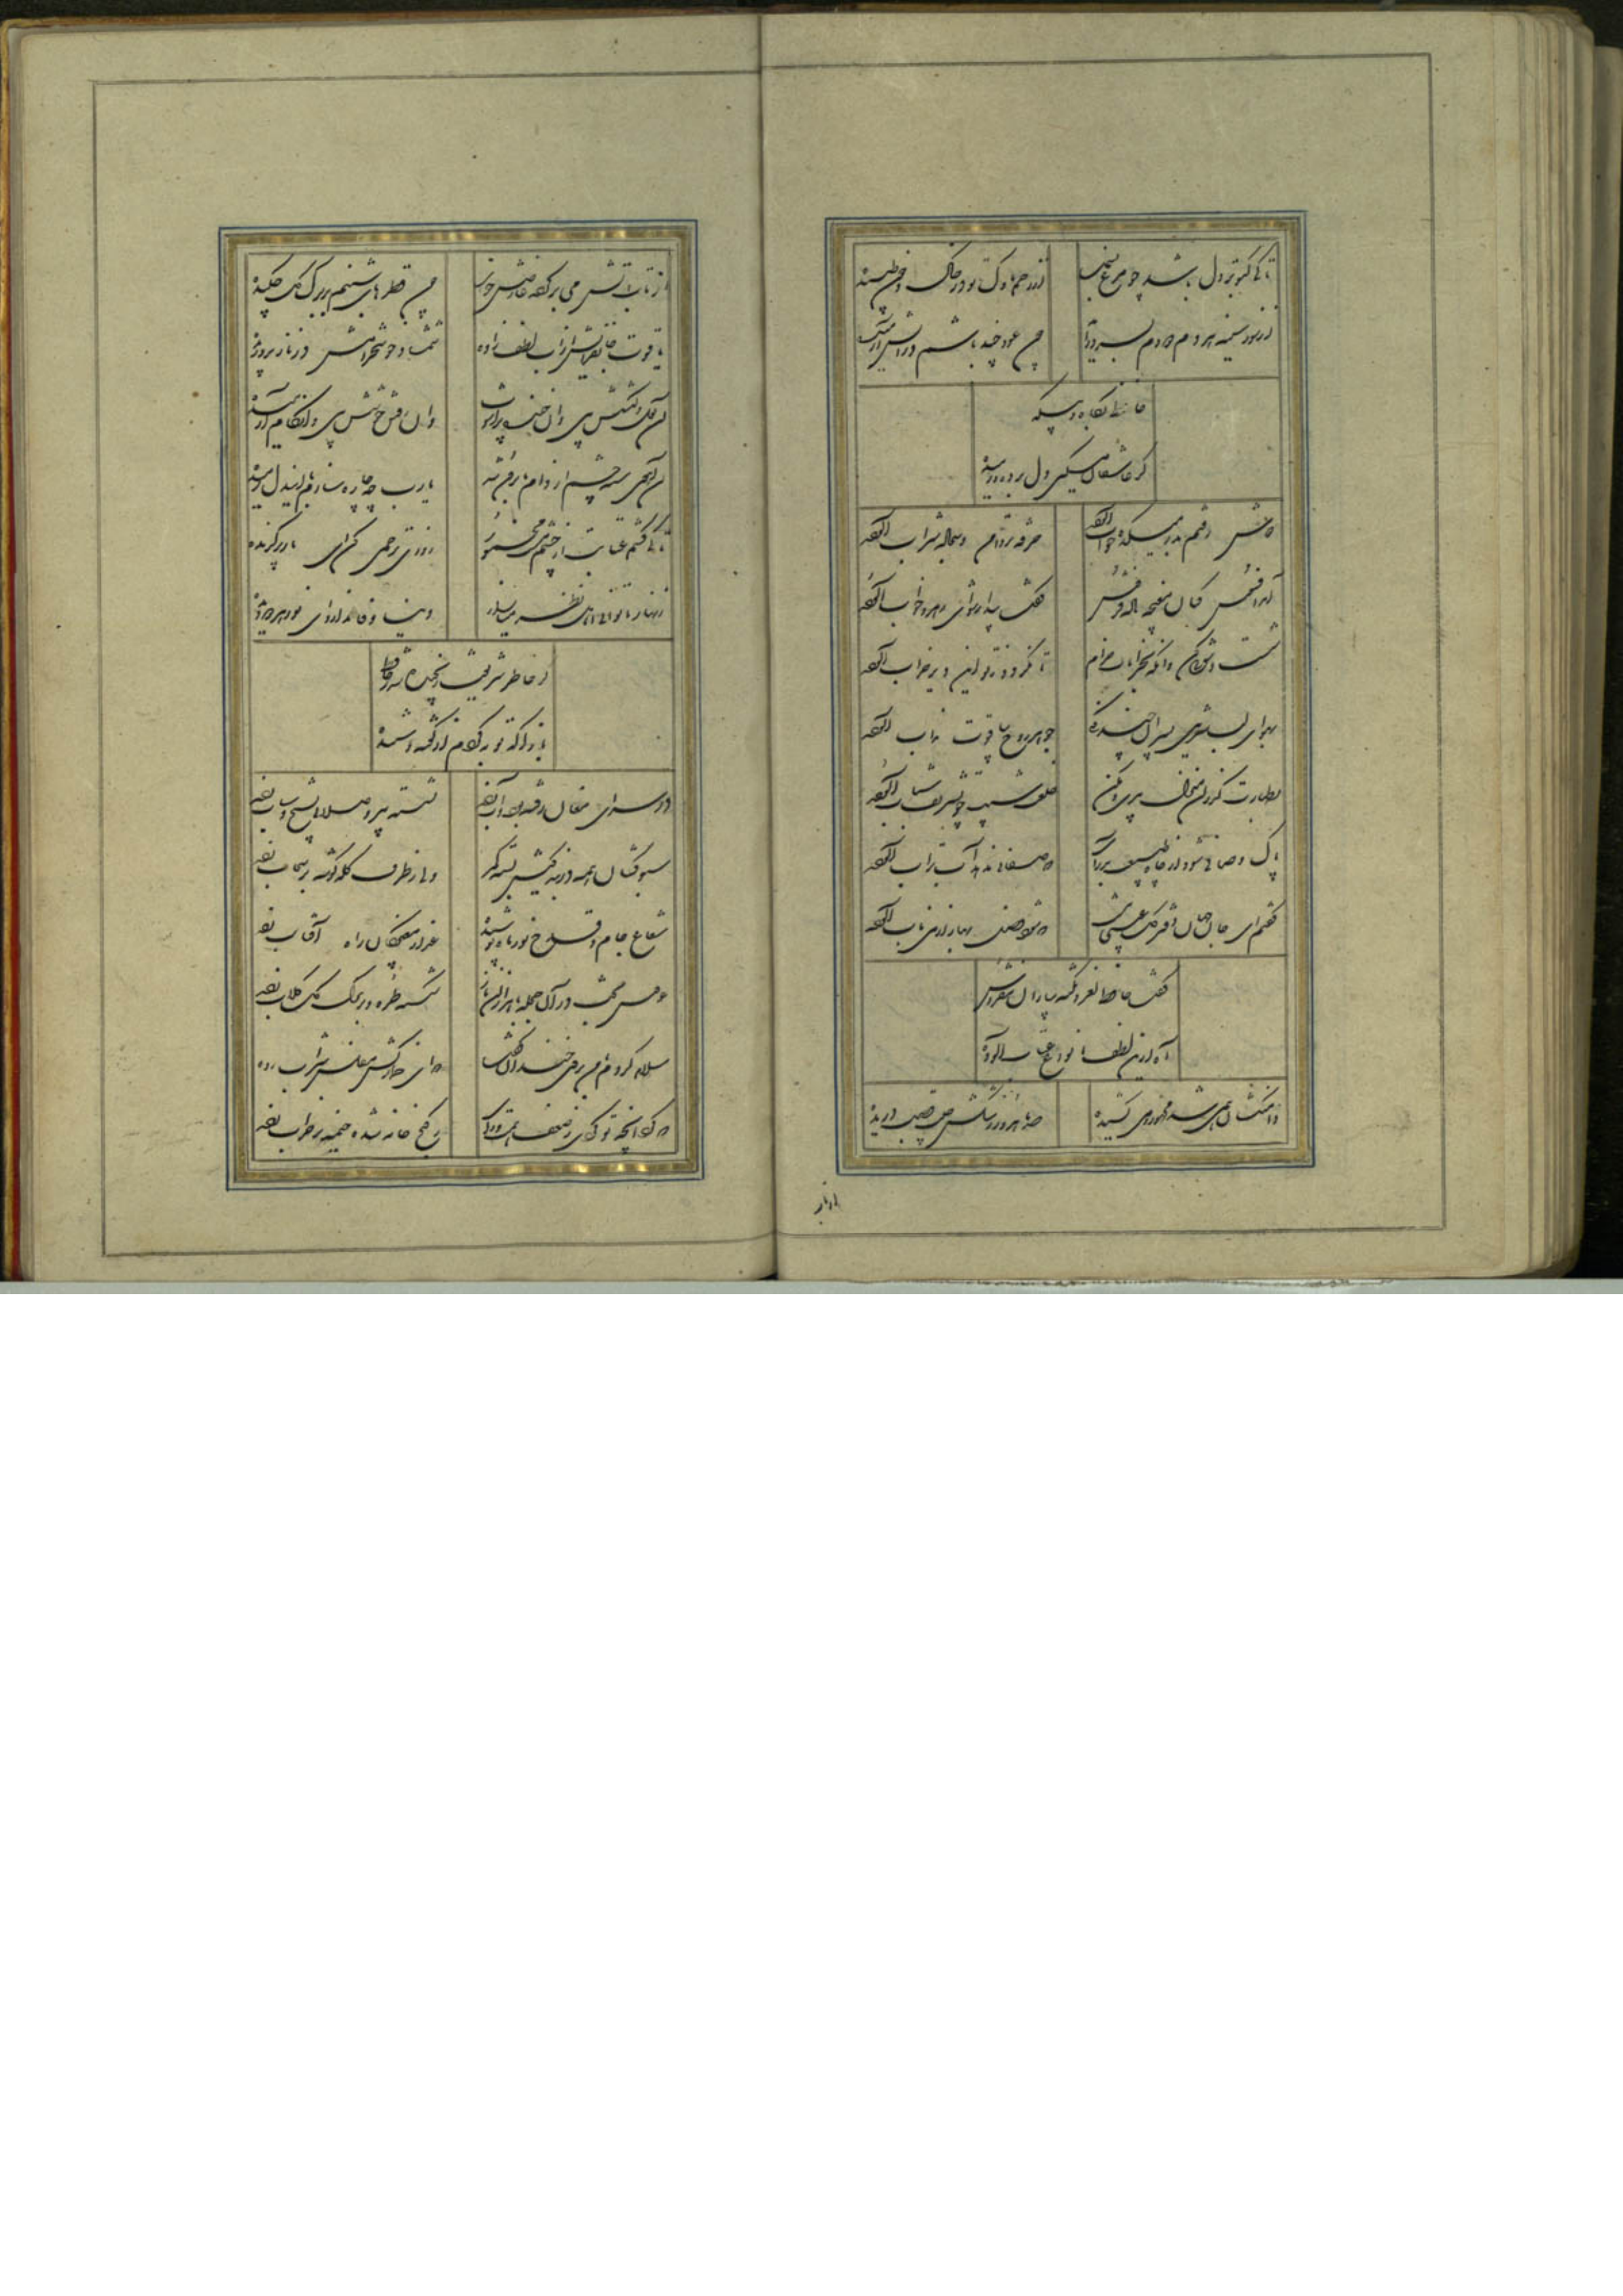 تا کی کبوتر دل باشد چو مرغ بسمل از زخم ناوک تو در خاک و خون طپیده
از سوز سینه هر دم دودم بسر برآید چون عود چند باشم در آتش آرمیده
حافظ
گر عاشقان مسکین دل
دوش رفتم بدر میکده خواب آلوده خرقه تر دامن و سجاده شراب آلوده
آمد افسوس کنان مغبچه باده فروش گفت بیدار شو ای رهرو خواب آلوده
شست و شوئی کن و آنگه بخرابات خرام تا نگردد ز تو این دیر خراب آلوده
بهوای لب شیرین پسران چند کنی جوهر روح بیاقوت مذاب آلوده
بطهارت گذران منزل پیری و مکن خلعت شیب چو تشریف شباب آلوده
پاک و صافی شو و از چاه طبیعت بدر آی که صفائی ندهد آب تراب آلوده
گفتم ای جان جهان دفتر گل عیبی نیست که شود فصل بهار از می ناب آلوده
گفت حافظ لغز و نکته بیاران مفروش
آه ازین لطف بانواع عتاب آلوده
دامن کشان همی شد در کشیده صد ماهرو ز رشکش جیب قصب دریده
از تاب
از تاب آتش می بر گرد عارضش خوی چون قطرهای شبنم بر برگ گل چکیده
یاقوت جانفزایش از آب لطف زاده شمشاد خوشخرامش در ناز پروریده
آن لعل دلکشش بین وان خنده پر آشوب وان رفتن خوشش بین وان گام آرمیده
آن آهوی سیه چشم از دام ما برون شد یارب چه چاره سازم با این دل رمیده
تا کی کشم عتابت از چشم پر فسونت روزی ترحمی کن ای یار برگزیده
زنهار تا توانی اهل نظر میازار دنیا وفا ندارد ای نور هر دو دیده
گر خاطر شریفت رنجیده شد ز حافظ
باز آ که توبه کردم از گفته و شنیده
در سرای مغان رفته بود و آب زده نشسته پیر و صلائی بشیخ و شاب زده
سبوکشان همه در بندگیش بسته کمر ولی ز طرف کله گوشه بر سحاب زده
شعاع جام و قدح نور ماه پوشیده عذار مغبچگان راه آفتاب زده
عروس بخت در آن حجله با هزاران ناز شکسته طره و بر برگ گل گلاب زده
سلام کردم و با من بروی خندان گفت که ای خمارکش مفلس شراب زده
که کرد اینچه تو کردی ز ضعف همت و رای ز گنج خانه شده خیمه بر خراب زده